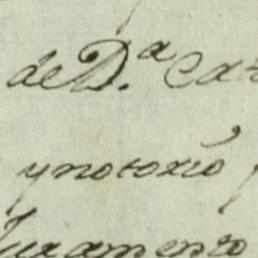 de D.ª Cat
ynotoxió
Juramento